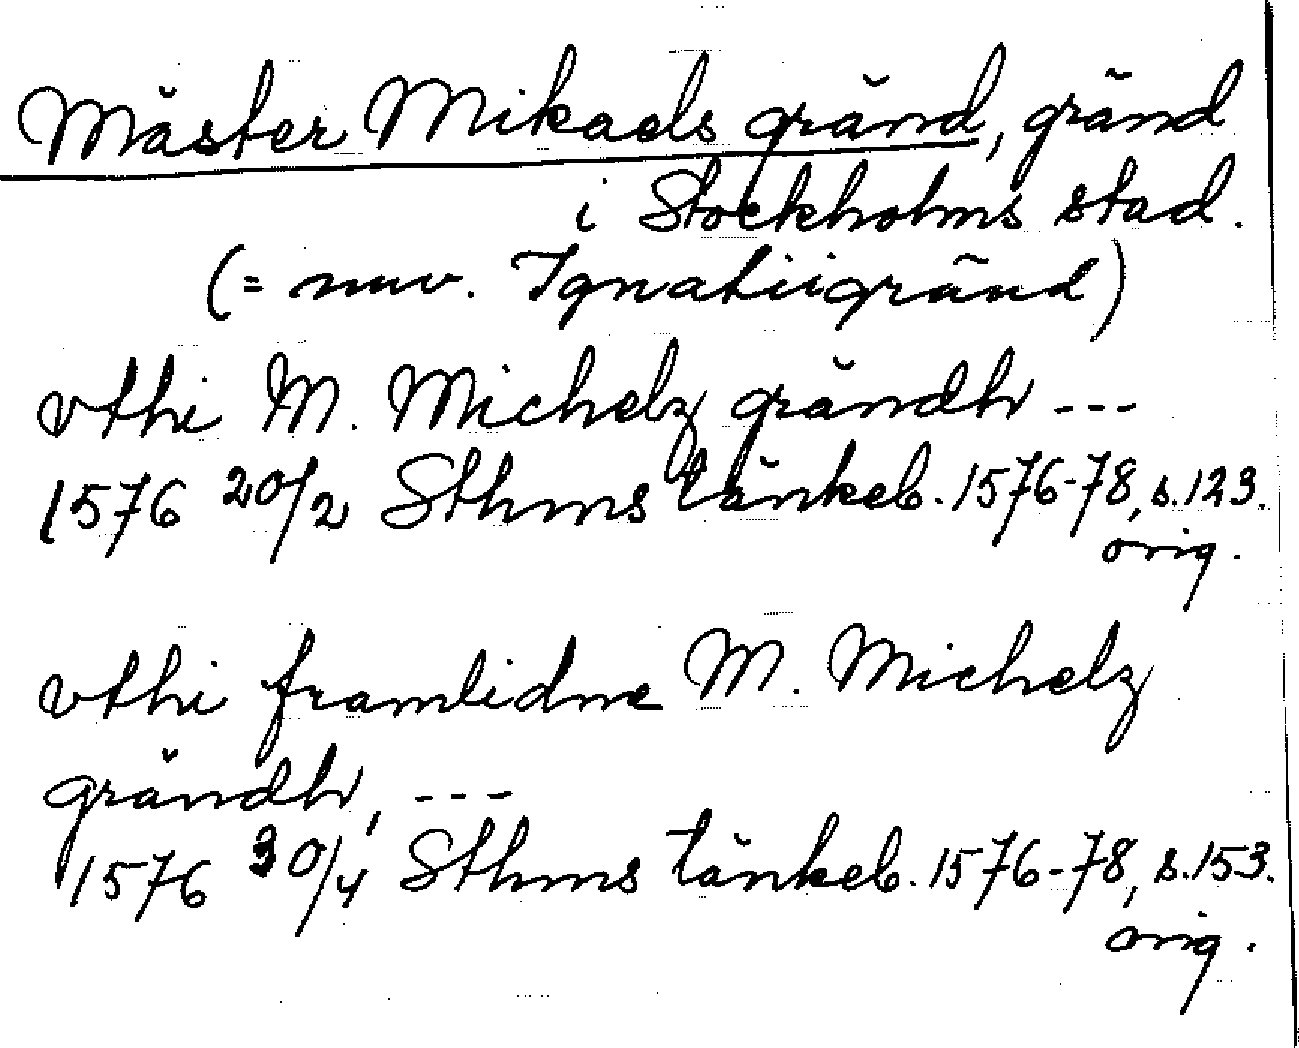 Mäster Mikaels gränd, gränd
i Stockholms stad.
(= nuv. Ignatiigränd)
vthi M. Michelz grändh ---
1576 20/2 Sthms tänkeb. 1576-78, s. 123.
orig.
vthi framlidne M. Michelz
grändh, ---
1576 30/4 Sthms tänkeb. 1576-78, s. 153.
orig.